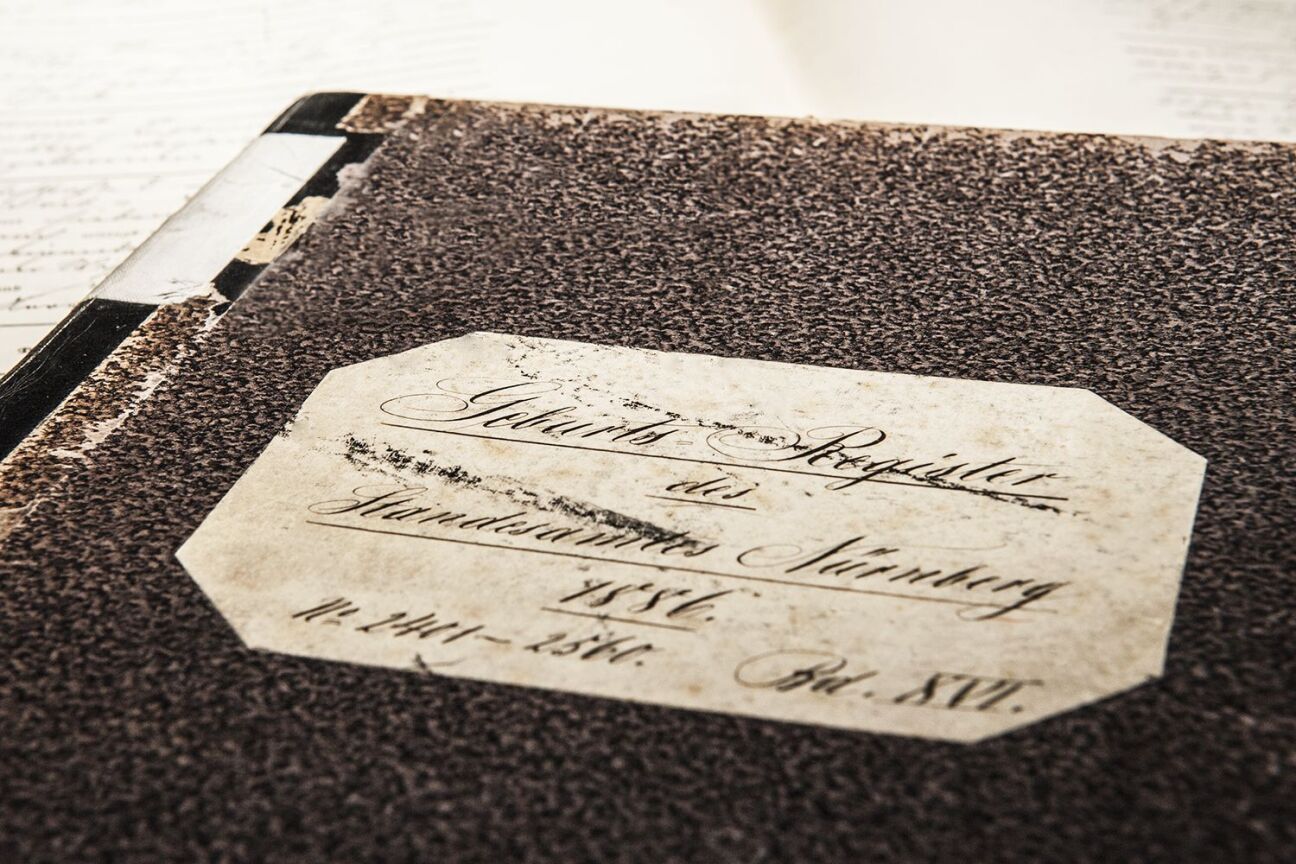 Geburts-Register
des
Standesamtes Nürnberg
1886.
No 2401 – 2560.
Bd. XVI.